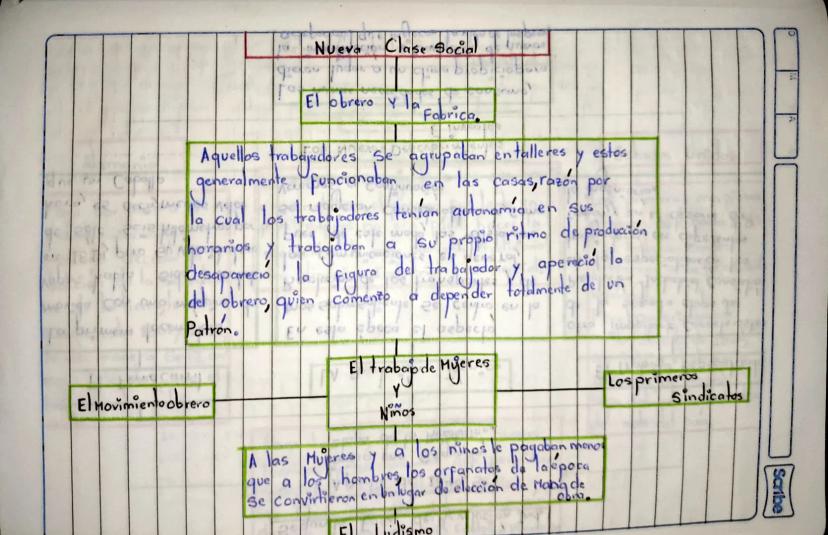 Nueva Clase Social
El obrero y la
Fabrica.
Aquellos trabajadores se agrupaban en talleres y estos
generalmente funcionaban en las casas, razón por
la cual los trabajadores tenían autonomía en sus
horarios y trabajaban a su propio ritmo de produción
desapareció la figura del trabajador y apereció la
del obrero, quien comenzo a depender totalmente de un
Patrón.
El trabajo de Mujeres
y
Niños
El Movimiento obrero
Los primeros
Sindicatos
A las Mujeres y a los niños le pagaban meno
que a los hombres, los orfanatos de la época
se convirtieron en un lugar de elección de Mano de
obra.
El Ludismo
Scribe
D
M
A